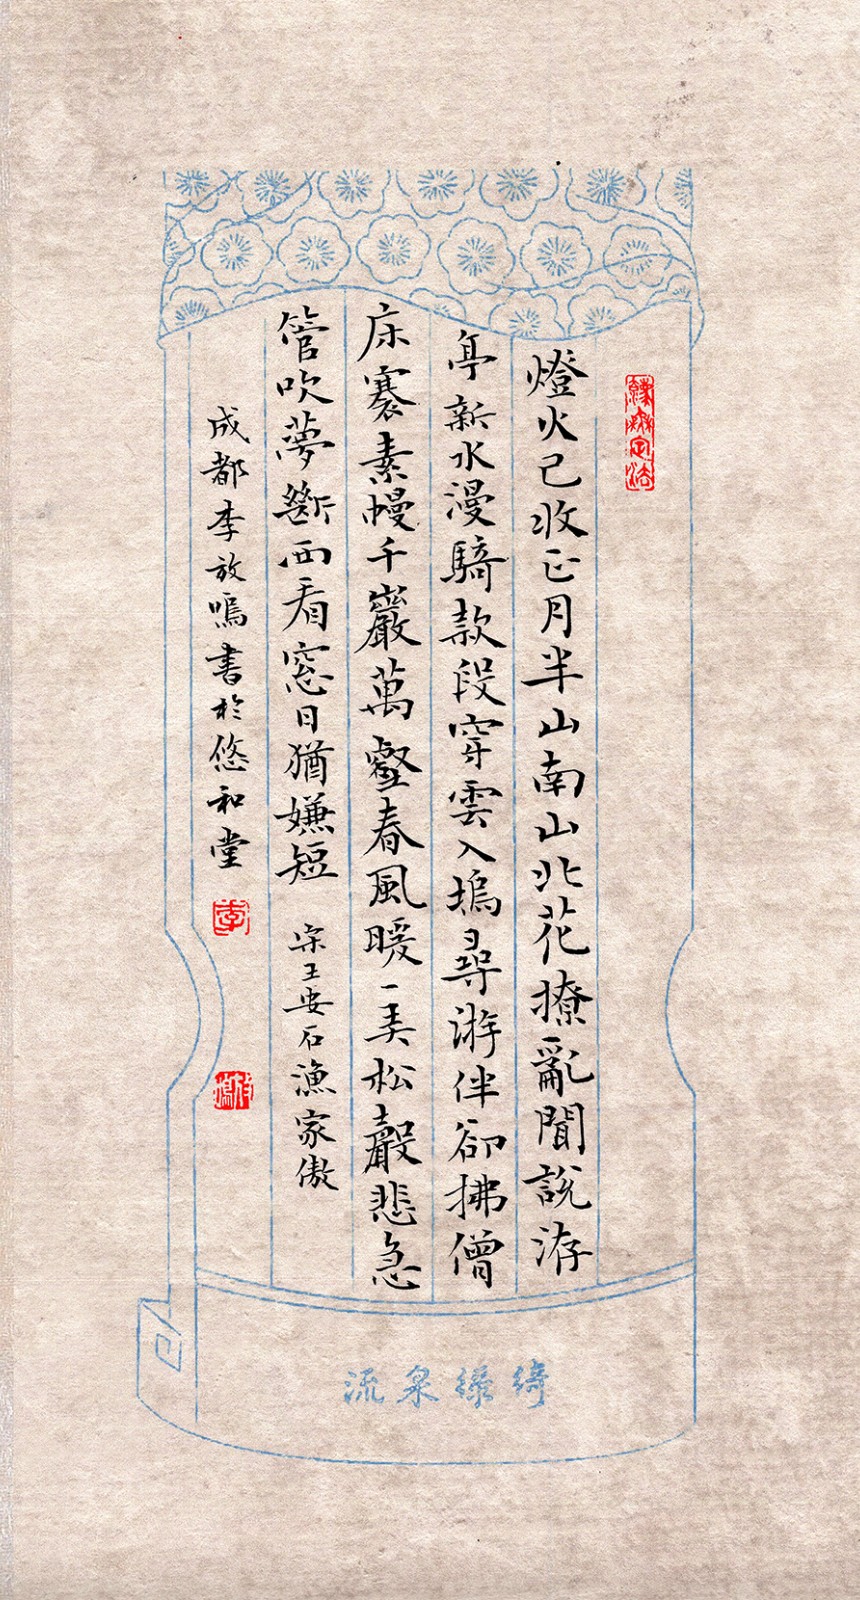 燈火已收正月半山南山北花撩亂聞說洊
亭新水漫騎款段穿雲入塢尋游伴卻拂僧
床褰素幔千巖萬壑春風暖一弄松聲悲急
管吹夢斷西看窗日猶嫌短 宋王安石漁家傲
成都李放鳴書於悠和堂
李
流泉綠綺